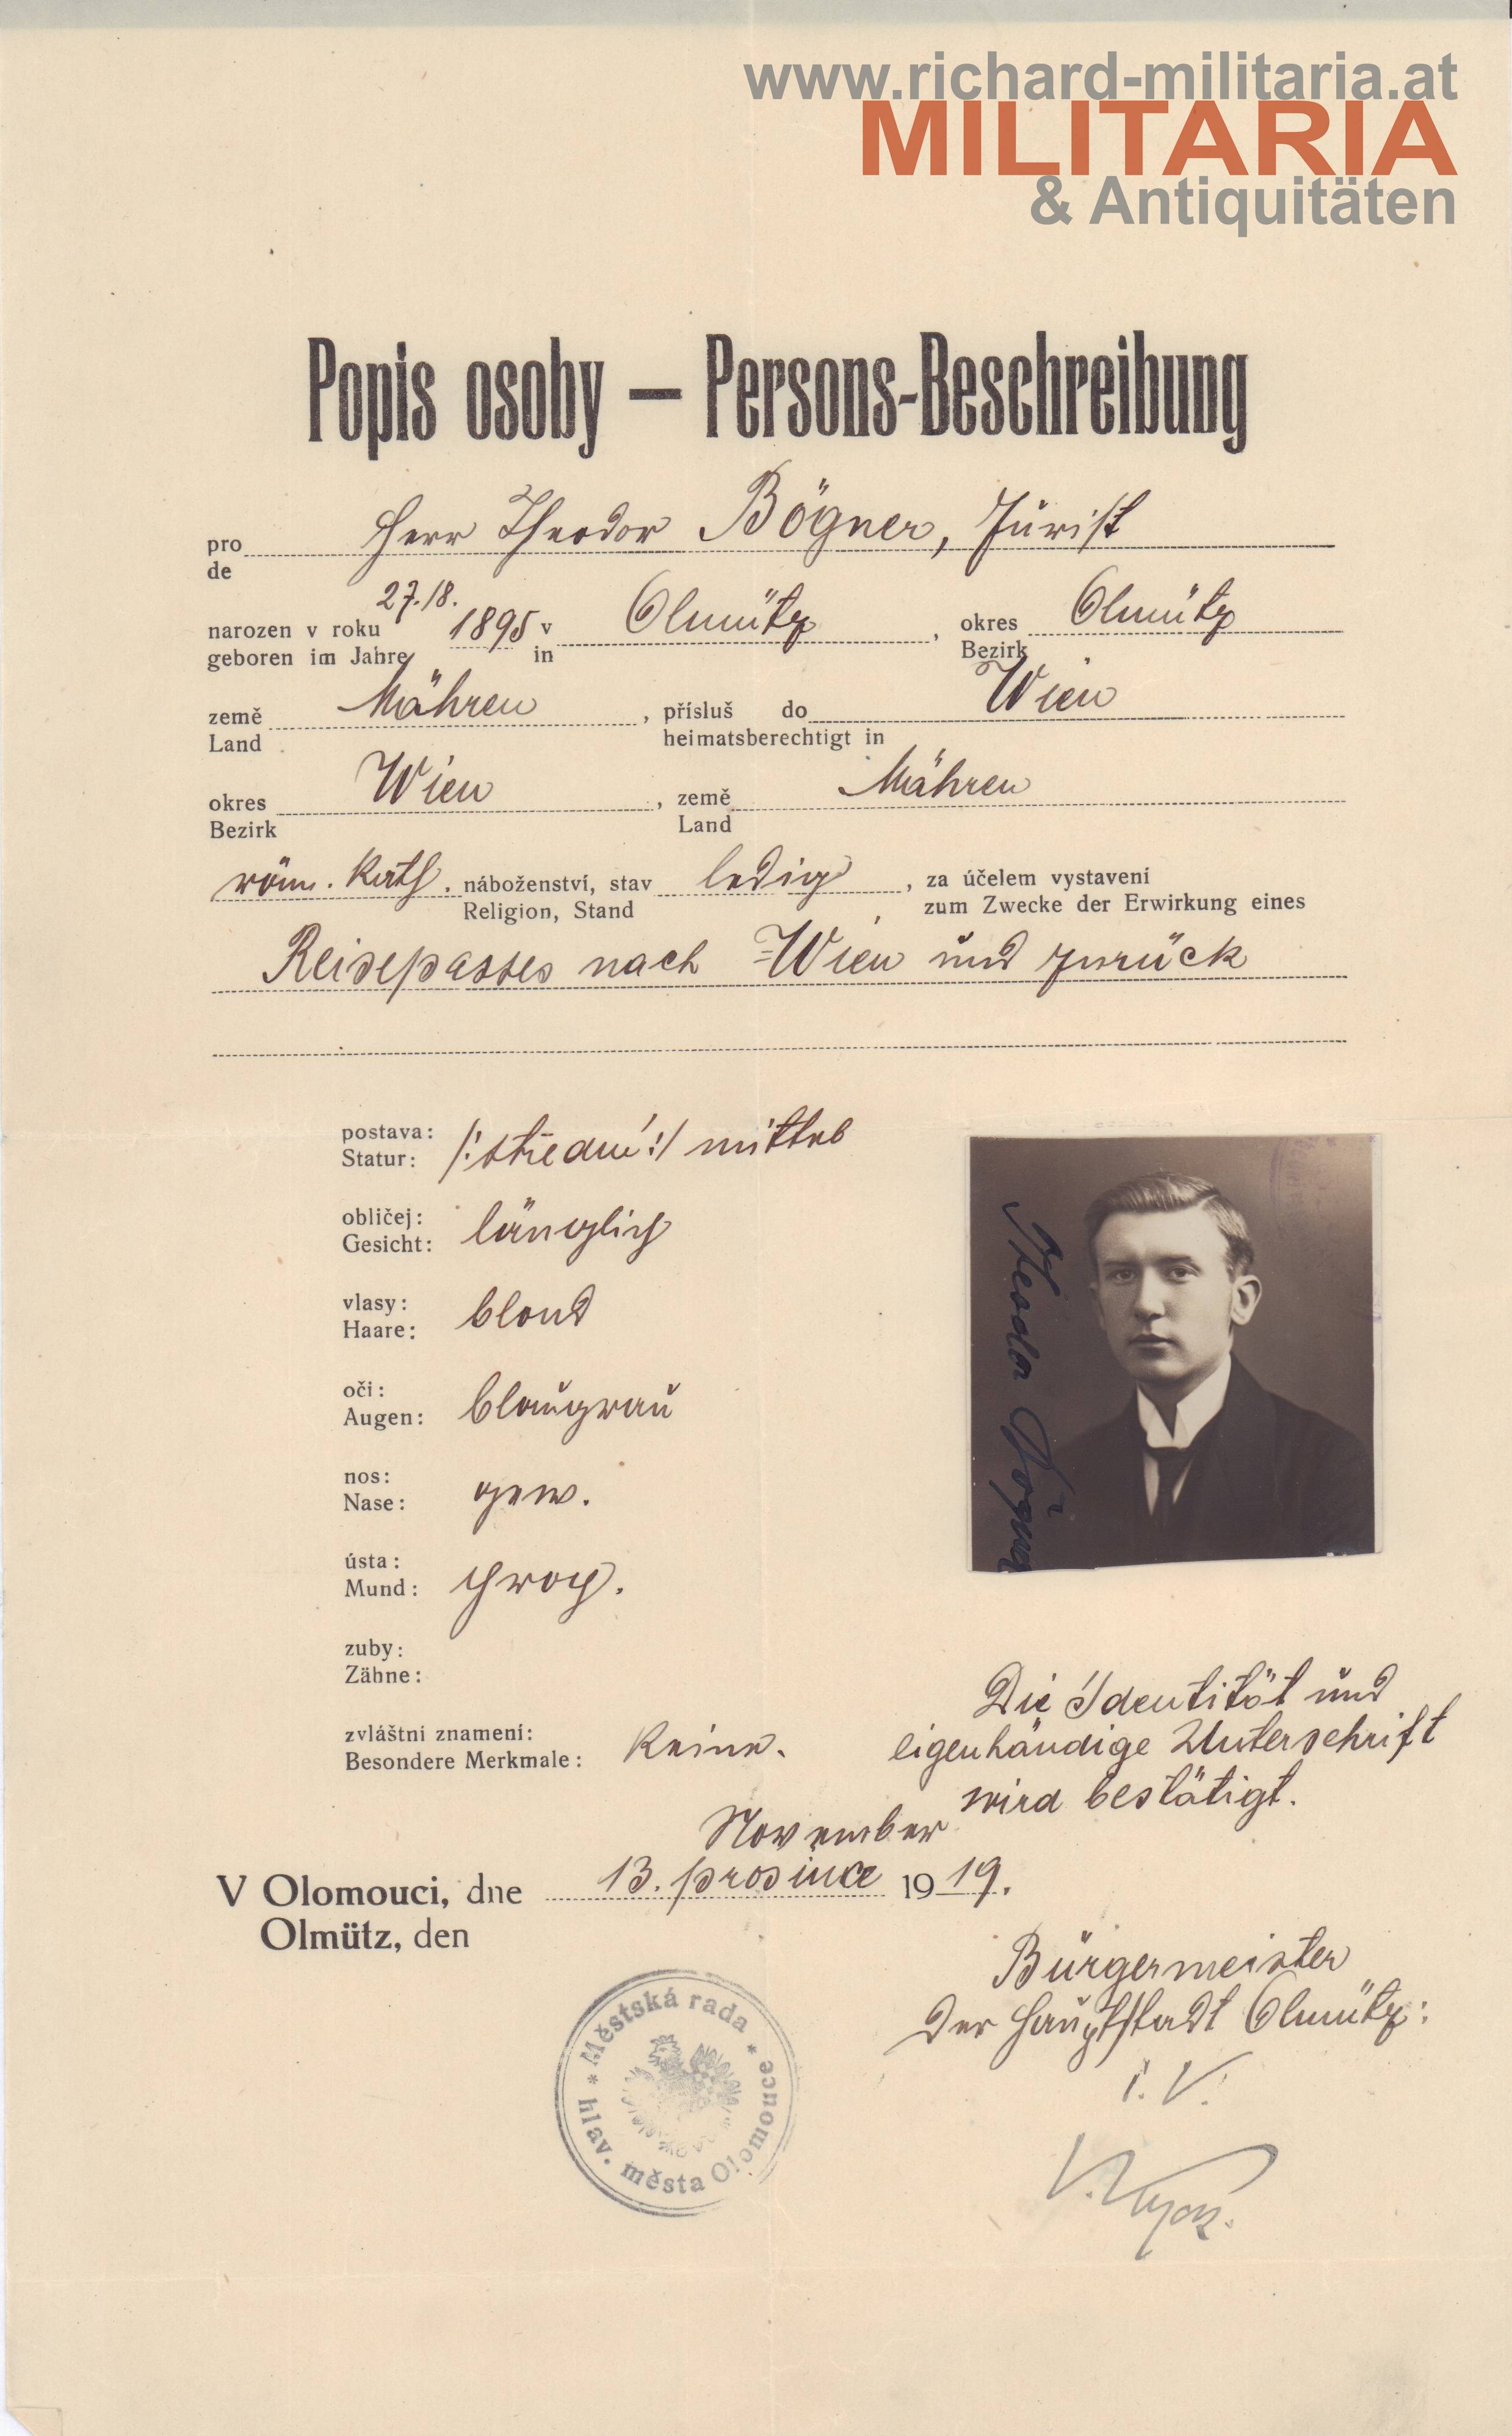 www.richard-militaria.at
MILITARIA
& Antiquitäten
Popis osoby — Persons-Beschreibung
pro Herr Theodor Bögner, Jurist
de
27./8.
narozen v roku 1895 v Olmütz, okres Olmütz
geboren im Jahre in Bezirk
země Mähren, přísluš do Wien
Land heimatsberechtigt in
okres Wien, země Mähren
Bezirk Land
röm. kath. náboženství, stav ledig, za účelem vystavení
Religion, Stand zum Zwecke der Erwirkung eines
Reisepasses nach Wien und zurück
postava: /:střední:/ mittel
Statur:
obličej: länglich
Gesicht:
vlasy: blond
Haare:
oči: blaugrau
Augen:
nos: gew.
Nase:
ústa:
Mund:
zuby:
Zähne:
zvláštni znamení: keine.
Besondere Merkmale:
Theodor Bögner
Die Identität und
eigenhändige Unterschrift
wird bestätigt.
November
V Olomouci, dne 13. prosince 1919.
Olmütz, den
Bürgermeister
der Hauptstadt Olmütz:
i. V.
* Městská rada * hlav. města Olomouce